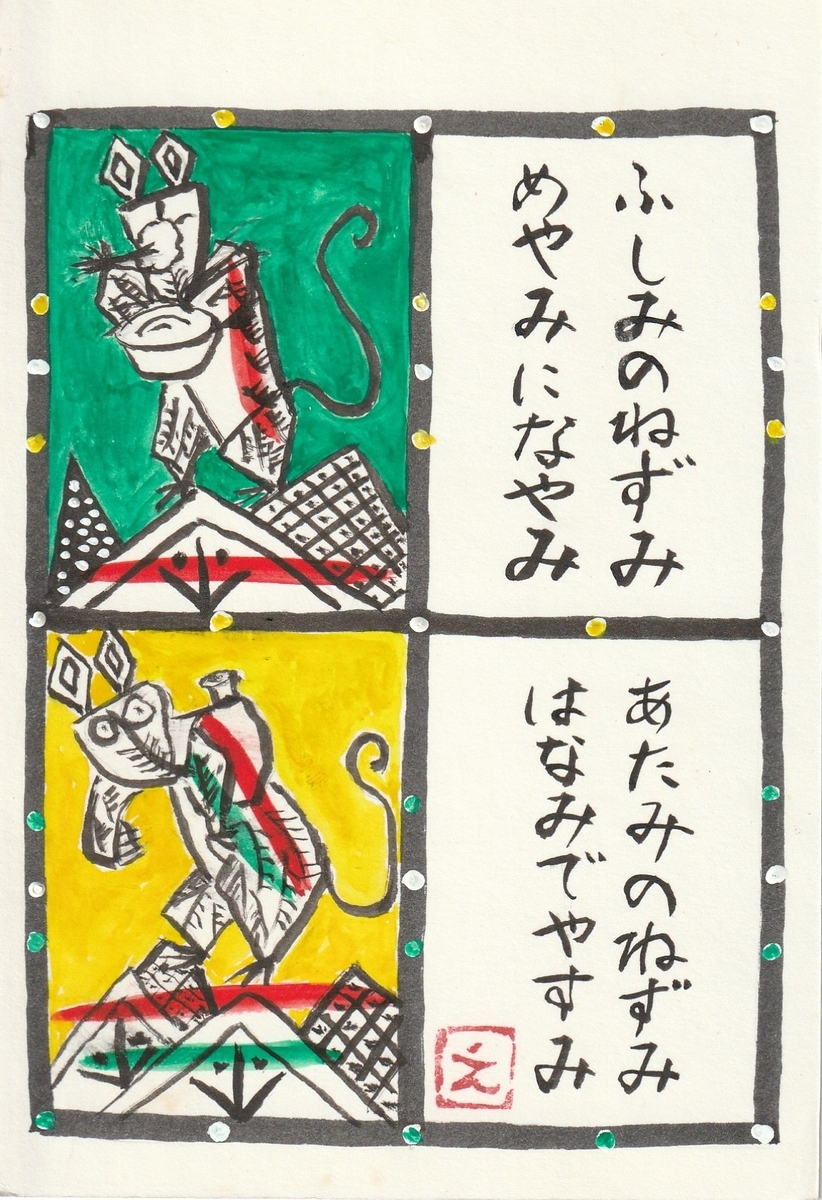 ふしみのねずみ
めやみになやみ
あたみのねずみ
はなみでやすみ
え